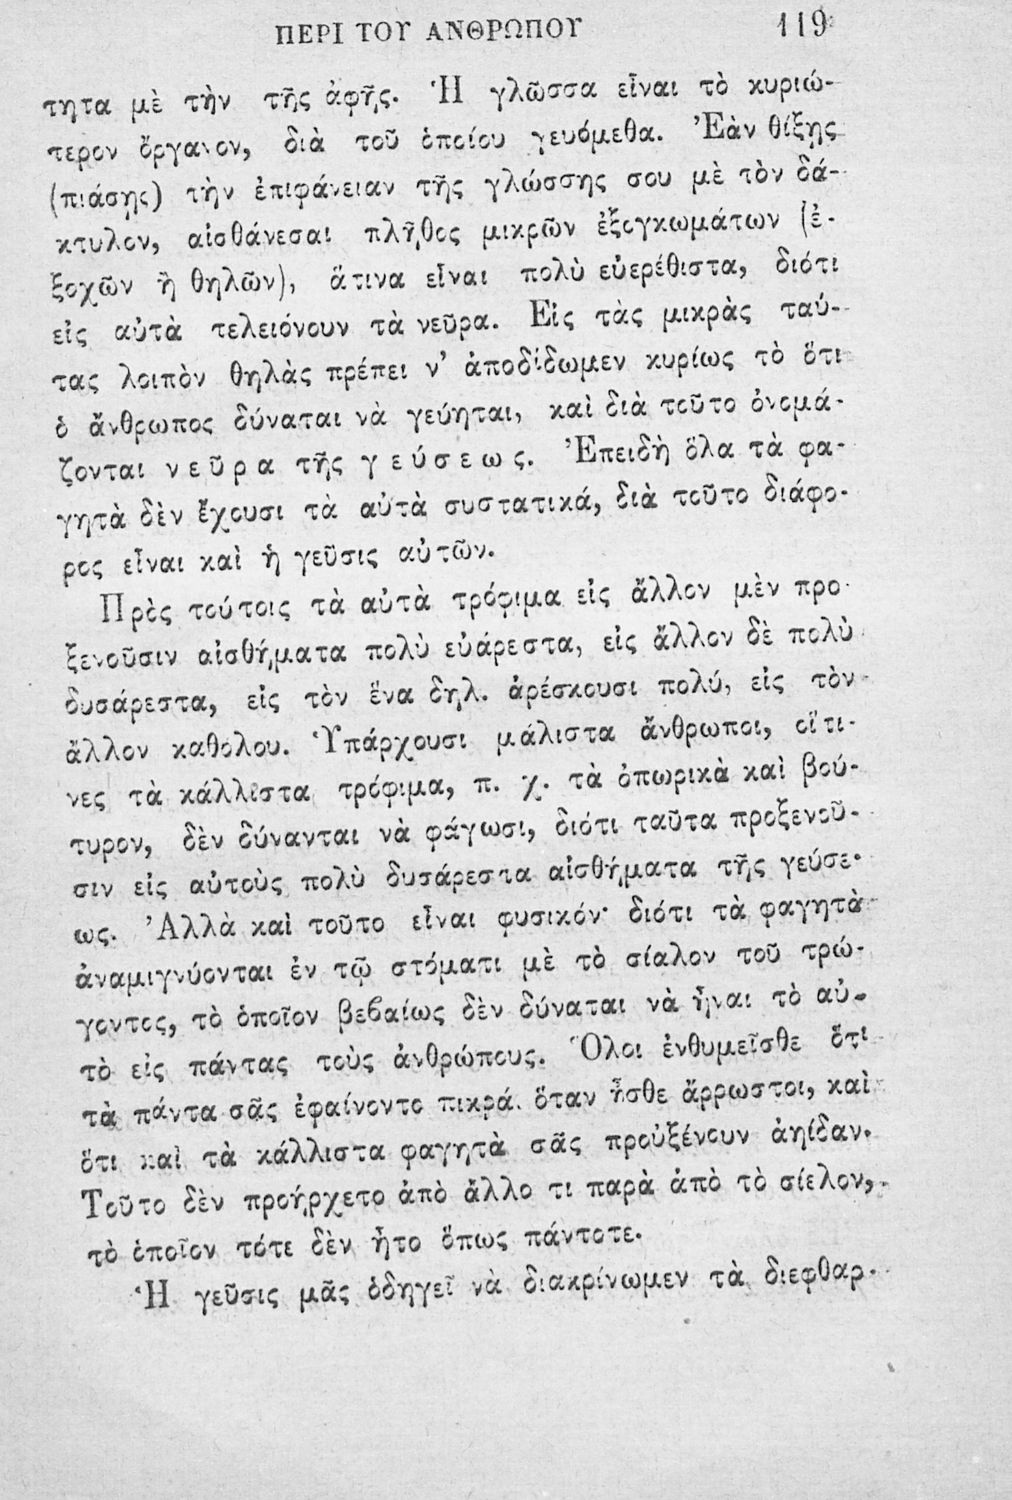 ΠΕΡΙ ΤΟΥ ΑΝΘΡΩΠΟΥ 119
τητα μὲ τὴν τῆς ἁφῆς. Ἡ γλῶσσα εἶναι τὸ κυριώ-
τερον ὄργανον, διὰ τοῦ ὁποίου γευόμεθα. Ἐὰν θίξῃς
(πιάσῃς) τὴν ἐπιφάνειαν τῆς γλώσσης σου μὲ τὸν δά-
κτυλον, αἰσθάνεσαι πλῆθος μικρῶν ἐξογκωμάτων (ἐ-
ξοχῶν ἢ θηλῶν), ἅτινα εἶναι πολὺ εὐερέθιστα, διότι
εἰς αὐτὰ τελειόνουν τὰ νεῦρα. Εἰς τὰς μικρὰς ταύ-
τας λοιπὸν θηλὰς πρέπει ν’ ἀποδίδωμεν κυρίως τὸ ὅτι
ὁ ἄνθρωπος δύναται νὰ γεύηται, καὶ διὰ τοῦτο ὀνομά-
ζονται νεῦρα τῆς γεύσεως. Ἐπειδὴ ὅλα τὰ φα-
γητὰ δὲν ἔχουσι τὰ αὐτὰ συστατικά, διὰ τοῦτο διάφο-
ρος εἶναι καὶ ἡ γεῦσις αὐτῶν.
Πρὸς τούτοις τὰ αὐτὰ τρόφιμα εἰς ἄλλον μὲν προ-
ξενοῦσιν αἰσθήματα πολὺ εὐάρεστα, εἰς ἄλλον δὲ πολὺ
δυσάρεστα, εἰς τὸν ἕνα δηλ. ἀρέσκουσι πολύ, εἰς τὸν
ἄλλον καθόλου. Ὑπάρχουσι μάλιστα ἄνθρωποι, οἵτι-
νες τὰ κάλλιστα τρόφιμα, π. χ. τὰ ὀπωρικὰ καὶ βού-
τυρον, δὲν δύνανται νὰ φάγωσι, διότι ταῦτα προξενοῦ-
σιν εἰς αὐτοὺς πολὺ δυσάρεστα αἰσθήματα τῆς γεύσε-
ως. Ἀλλὰ καὶ τοῦτο εἶναι φυσικόν· διότι τὰ φαγητὰ
ἀναμιγνύονται ἐν τῷ στόματι μὲ τὸ σίαλον τοῦ τρώ-
γοντος, τὸ ὁποῖον βεβαίως δὲν δύναται νὰ ἦναι τὸ αὐ-
τὸ εἰς πάντας τοὺς ἀνθρώπους. Ὅλοι ἐνθυμεῖσθε ὅτι
τὰ πάντα σᾶς ἐφαίνοντο πικρά, ὅταν ἦσθε ἄρρωστοι, καὶ
ὅτι καὶ τὰ κάλλιστα φαγητὰ σᾶς προὐξένουν ἀηίδαν.
Τοῦτο δὲν προήρχετο ἀπὸ ἄλλο τι παρὰ ἀπὸ τὸ σίελον,
τὸ ὁποῖον τότε δὲν ἦτο ὅπως πάντοτε.
Ἡ γεῦσις μᾶς ὁδηγεῖ νὰ διακρίνωμεν τὰ διεφθαρ-